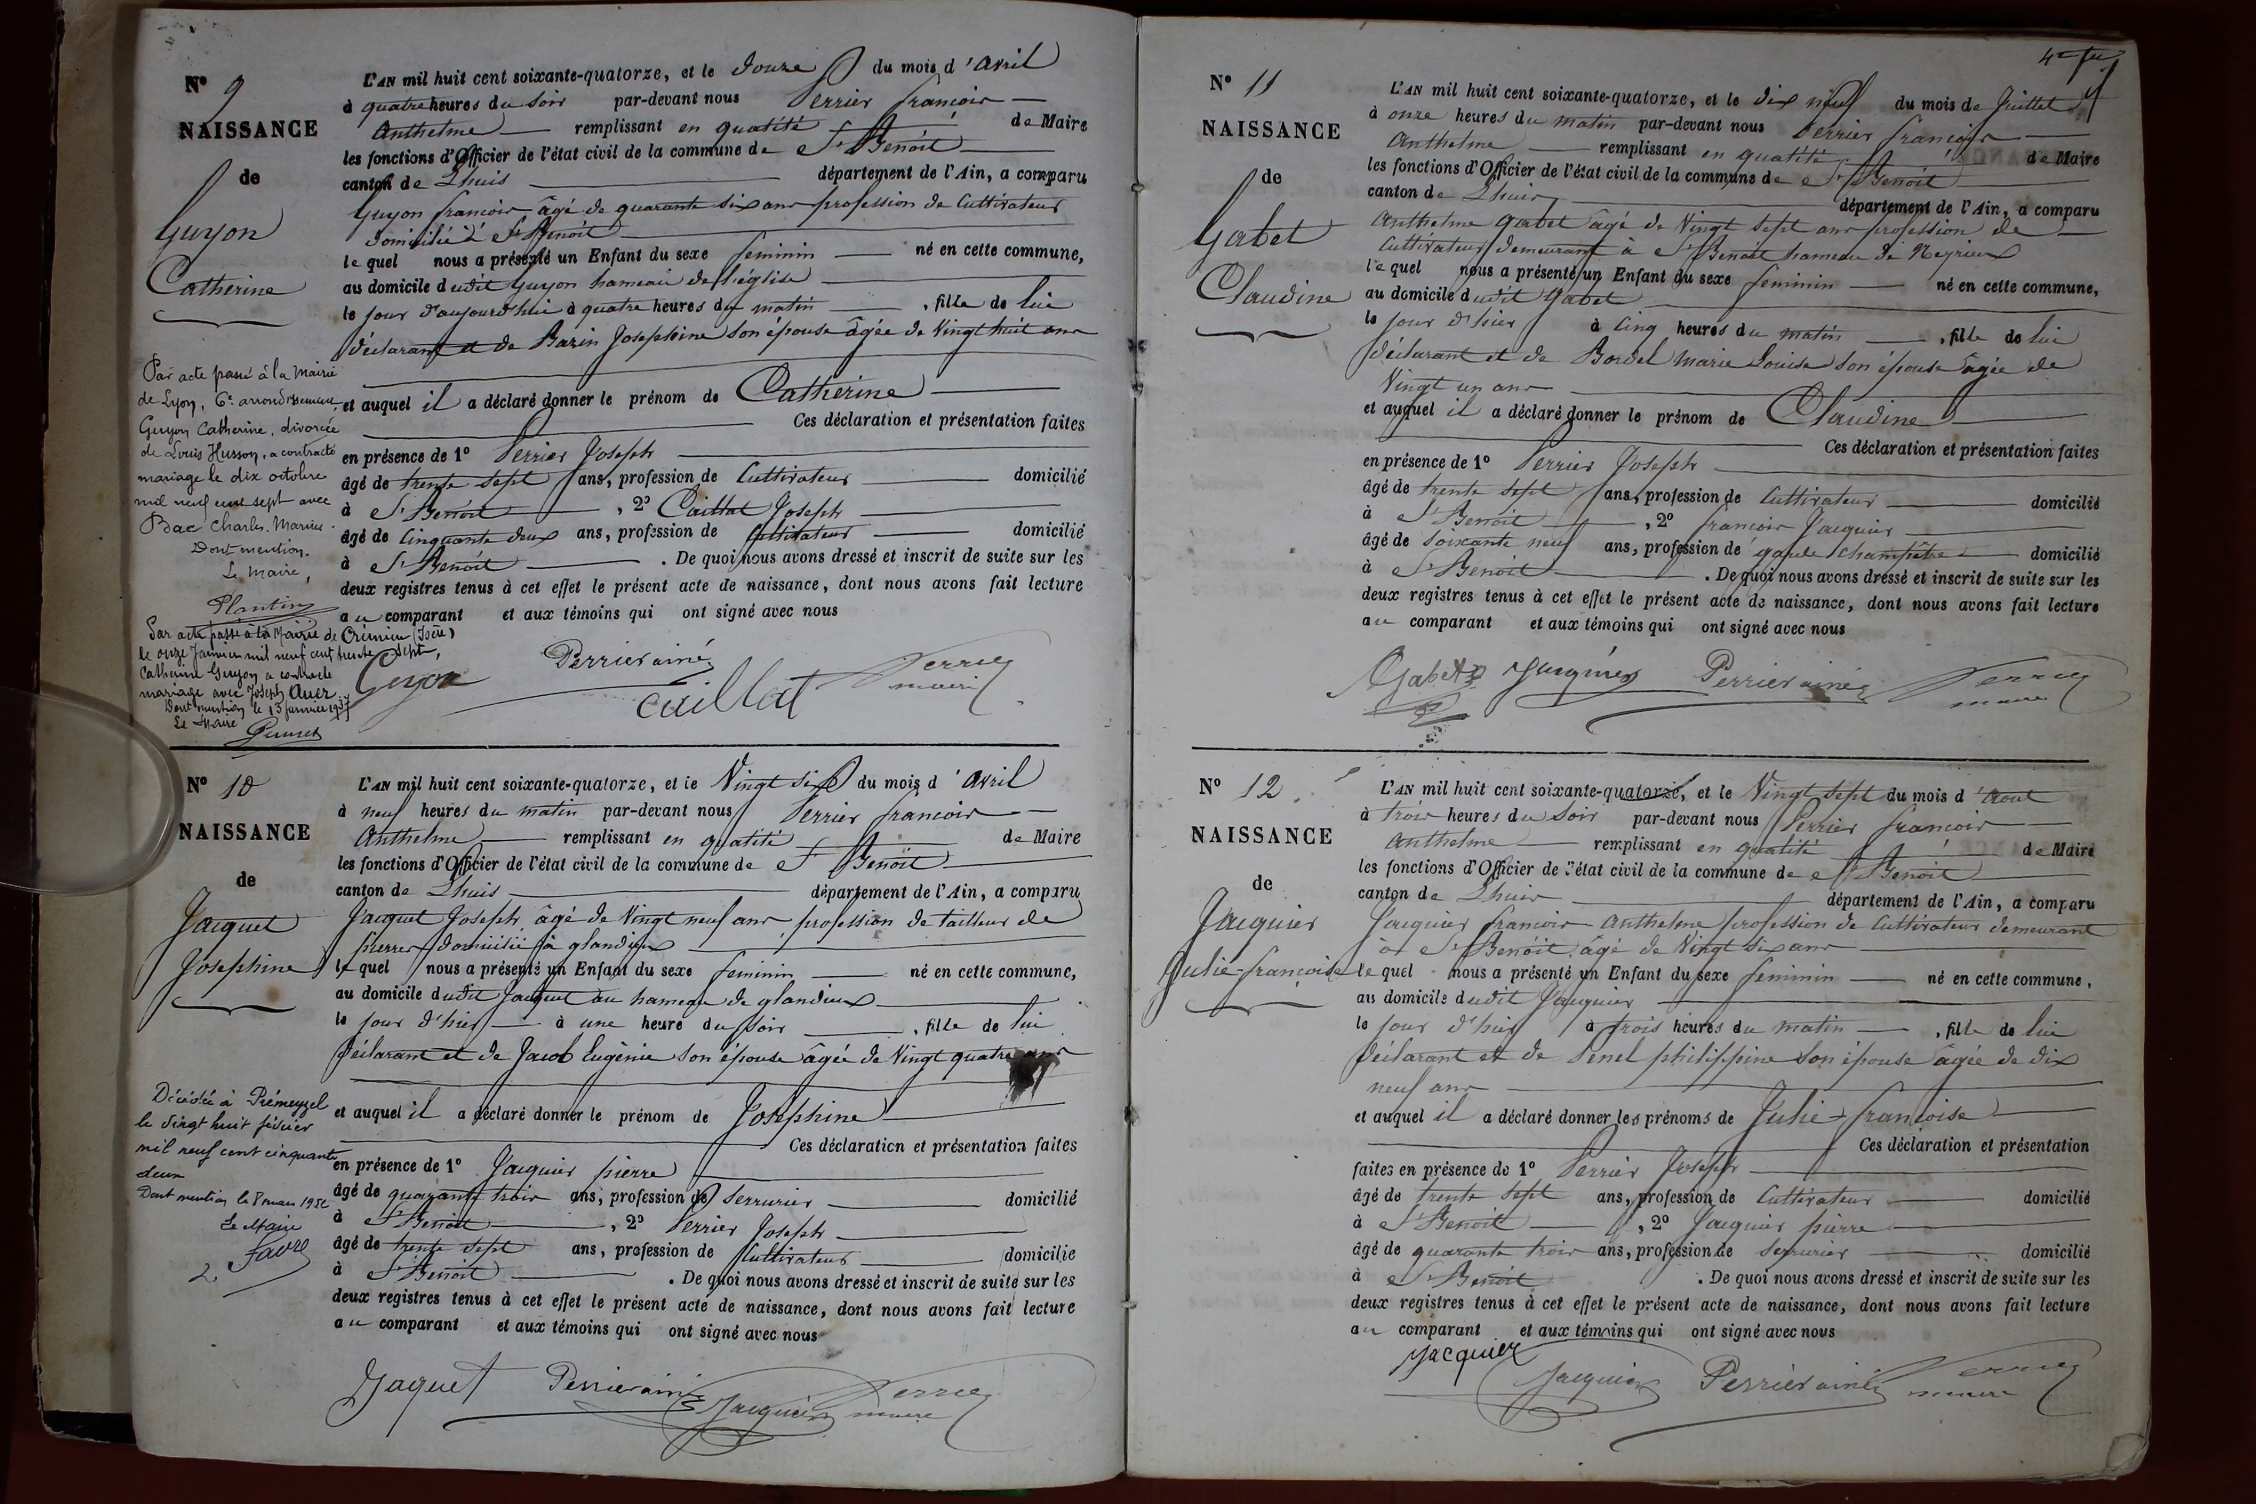 N° 9
NAISSANCE
de
Guyon
Catherine
L'AN mil huit cent soixante-quatorze, et le douze du mois d'avril
à quatre heures du soir par-devant nous Perrier françois
Anthelme remplissant en qualité de Maire
les fonctions d'Officier de l'état civil de la commune de St Benoit
canton de Lhuis département de l'Ain, a comparu
Guyon françois âgé de quarante six ans profession de Cultivateur
domicilié à St Benoit
lequel nous a présenté un Enfant du sexe feminin né en cette commune,
au domicile dudit Guyon hameau de l'église
le jour d'aujourd'hui à quatre heures du matin, fille de lui
déclarant et de Bazin Josephine son épouse âgée de Vingt huit ans
et auquel il a déclaré donner le prénom de Catherine
Ces déclaration et présentation faites
en présence de 1° Perrier Joseph
âgé de trente sept ans, profession de Cultivateur domicilié
à St Benoit, 2° Caillat Joseph
âgé de Cinquante deux ans, profession de Cultivateur domicilié
à St Benoit. De quoi nous avons dressé et inscrit de suite sur les
deux registres tenus à cet effet le présent acte de naissance, dont nous avons fait lecture
au comparant et aux témoins qui ont signé avec nous
Guyon Perrier ainé Caillat Perrier
maire
Par acte passé à la Mairie
de Lyon, 6e arrondissement,
Guyon Catherine, divorcée
de Louis Husson, a contracté
mariage le dix octobre
mil neuf cent sept avec
Bac Charles Marius.
Dont mention.
Le Maire,
Plantin
Par acte passé à la Mairie de Crémieu (Isère)
le onze Janvier mil neuf cent trente sept,
Catherine Guyon a contracté
mariage avec Joseph Auer.
Dont mention le 13 janvier 1937
Le Maire
N° 10
NAISSANCE
de
Jacquet
Josephine
L'AN mil huit cent soixante-quatorze, et le Vingt six du mois d'avril
à neuf heures du matin par-devant nous Perrier françois
Anthelme remplissant en qualité de Maire
les fonctions d'Officier de l'état civil de la commune de St Benoit
canton de Lhuis département de l'Ain, a comparu
Jacquet Joseph âgé de Vingt neuf ans profession de tailleur de
pierres domicilié à glandieu
lequel nous a présenté un Enfant du sexe feminin né en cette commune,
au domicile dudit Jacquet au hameau de glandieu
le jour d'hier à une heure du soir, fille de lui
déclarant et de Jacob Eugènie son épouse âgée de Vingt quatre ans
et auquel il a déclaré donner le prénom de Josephine
Ces déclaration et présentation faites
en présence de 1° Jacquier pierre
âgé de quarante trois ans, profession de Serrurier domicilié
à St Benoit, 2° Perrier Joseph
âgé de trente sept ans, profession de Cultivateur domicilié
à St Benoit. De quoi nous avons dressé et inscrit de suite sur les
deux registres tenus à cet effet le présent acte de naissance, dont nous avons fait lecture
au comparant et aux témoins qui ont signé avec nous
Jaquet Perrier ainé Jacquier Perrier
maire
Décédée à Prémeyzel
le vingt huit février
mil neuf cent cinquante
deux
Dont mention le 8 mars 1952
Le Maire
Favre
N° 11
NAISSANCE
de
Gabet
Claudine
L'AN mil huit cent soixante-quatorze, et le dix neuf du mois de Juillet
à onze heures du matin par-devant nous Perrier françois
Anthelme remplissant en qualité de Maire
les fonctions d'Officier de l'état civil de la commune de St Benoit
canton de Lhuis département de l'Ain, a comparu
Anthelme Gabet âgé de Vingt sept ans profession de
Cultivateur demeurant à St Benoit hameau de Neyrieu
lequel nous a présenté un Enfant du sexe feminin né en cette commune,
au domicile dudit Gabet
le jour d'hier à Cinq heures du matin, fille de lui
déclarant et de Bordel marie Louise son épouse âgée de
Vingt un ans
et auquel il a déclaré donner le prénom de Claudine
Ces déclaration et présentation faites
en présence de 1° Perrier Joseph
âgé de trente sept ans, profession de Cultivateur domicilié
à St Benoit, 2° françois Jacquier
âgé de Soixante neuf ans, profession de garde champêtre domicilié
à St Benoit. De quoi nous avons dressé et inscrit de suite sur les
deux registres tenus à cet effet le présent acte de naissance, dont nous avons fait lecture
au comparant et aux témoins qui ont signé avec nous
Gabet Jacquier Perrier ainé Perrier
maire
N° 12
NAISSANCE
de
Jacquier
Julie-françoise
L'AN mil huit cent soixante-quatorze, et le Vingt sept du mois d'Aout
à trois heures du Soir par-devant nous Perrier françois
Anthelme remplissant en qualité de Maire
les fonctions d'Officier de l'état civil de la commune de St Benoit
canton de Lhuis département de l'Ain, a comparu
Jacquier françois Anthelme profession de Cultivateur demeurant
à St Benoit âgé de Vingt six ans
lequel nous a présenté un Enfant du sexe feminin né en cette commune,
au domicile dudit Jacquier
le jour d'hier à trois heures du matin, fille de lui
déclarant et de Penel philippine son épouse âgée de dix
neuf ans
et auquel il a déclaré donner les prénoms de Julie-françoise
Ces déclaration et présentation
faites en présence de 1° Perrier Joseph
âgé de trente sept ans, profession de Cultivateur domicilié
à St Benoit, 2° Jacquier pierre
âgé de quarante trois ans, profession de Serrurier domicilié
à St Benoit. De quoi nous avons dressé et inscrit de suite sur les
deux registres tenus à cet effet le présent acte de naissance, dont nous avons fait lecture
au comparant et aux témoins qui ont signé avec nous
Jacquier Jacquier Perrier ainé Perrier
maire